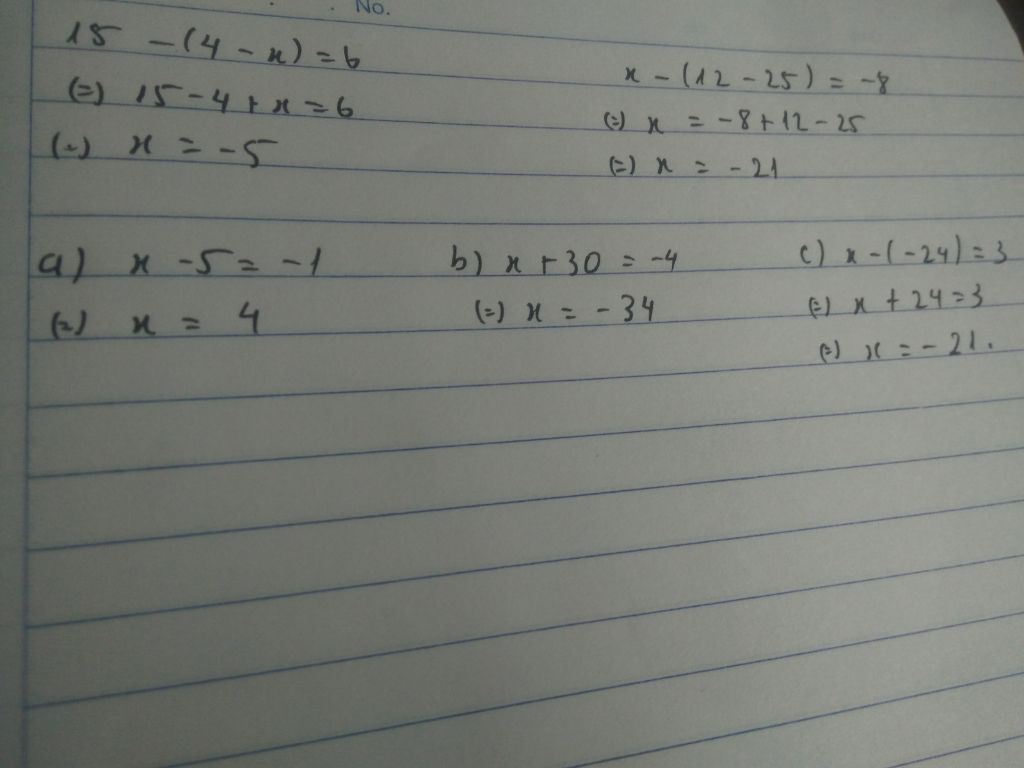 No.
15 - (4 - x) = 6
(=) 15 - 4 + x = 6
(=) x = -5
x - (12 - 25) = -8
(=) x = -8 + 12 - 25
(=) x = -21
a) x - 5 = -1
(=) x = 4
b) x + 30 = -4
(=) x = -34
c) x - (-24) = 3
(=) x + 24 = 3
(=) x = -21.